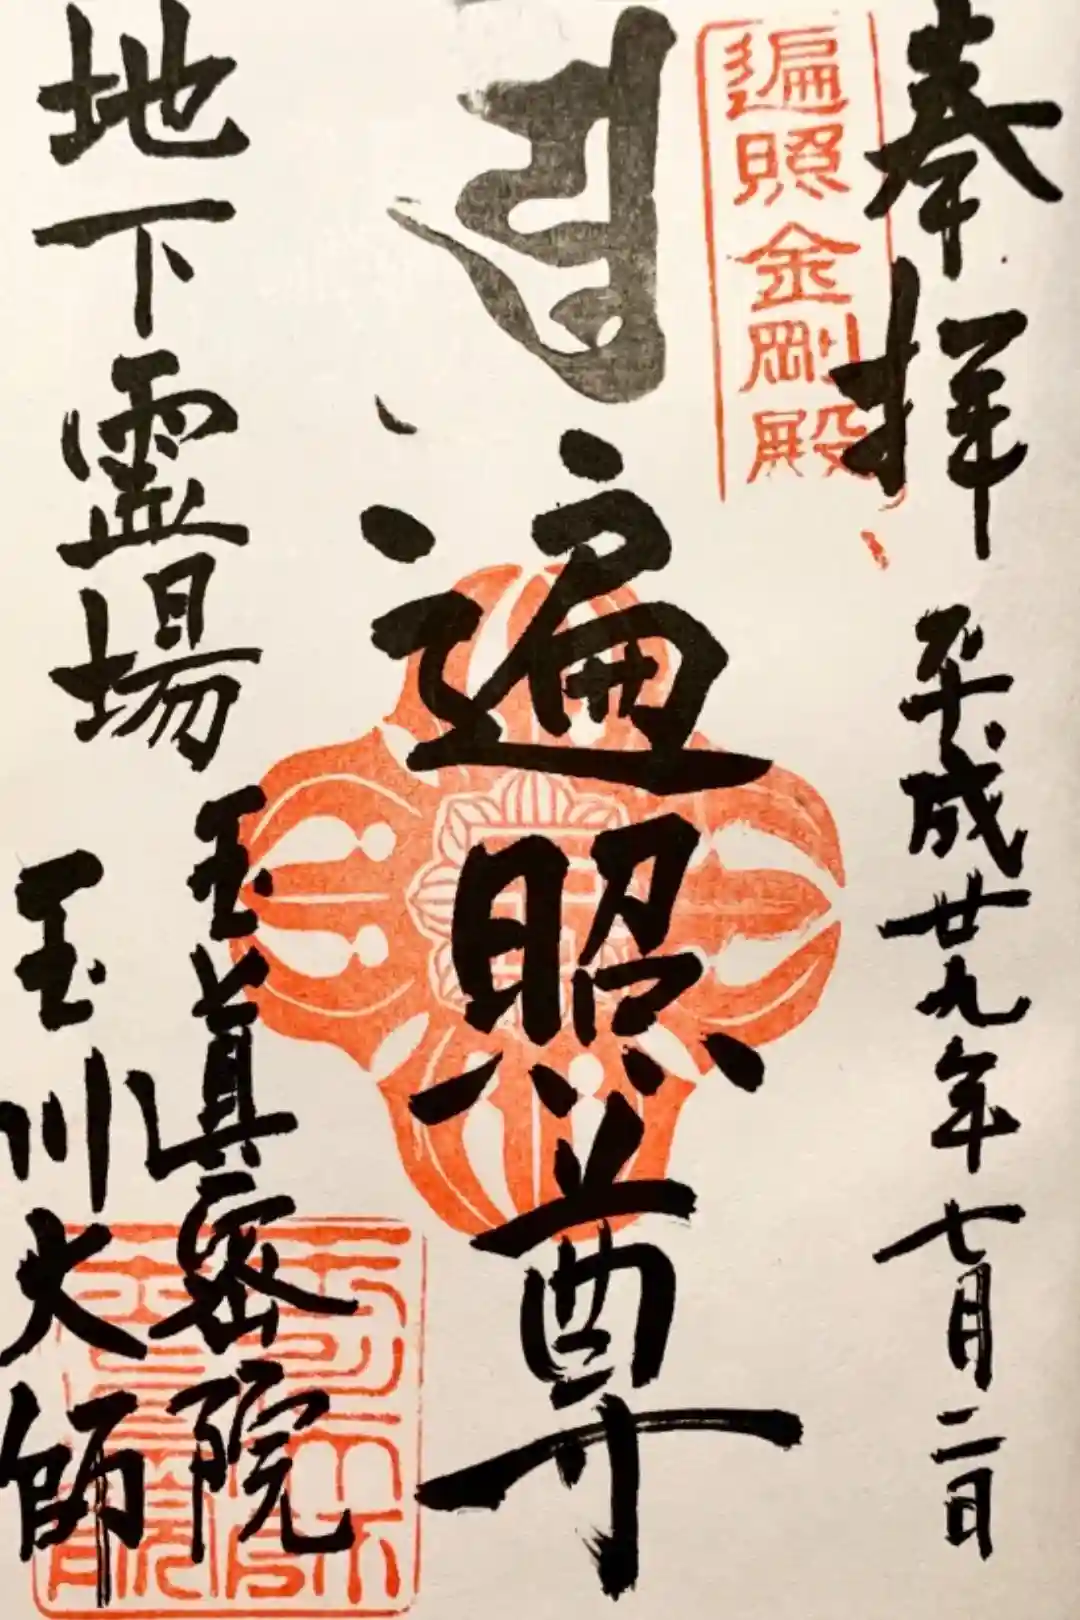 奉拝
平成廿九年七月二日
遍照金剛殿
遍照尊
地下霊場
玉眞密院
玉川大師